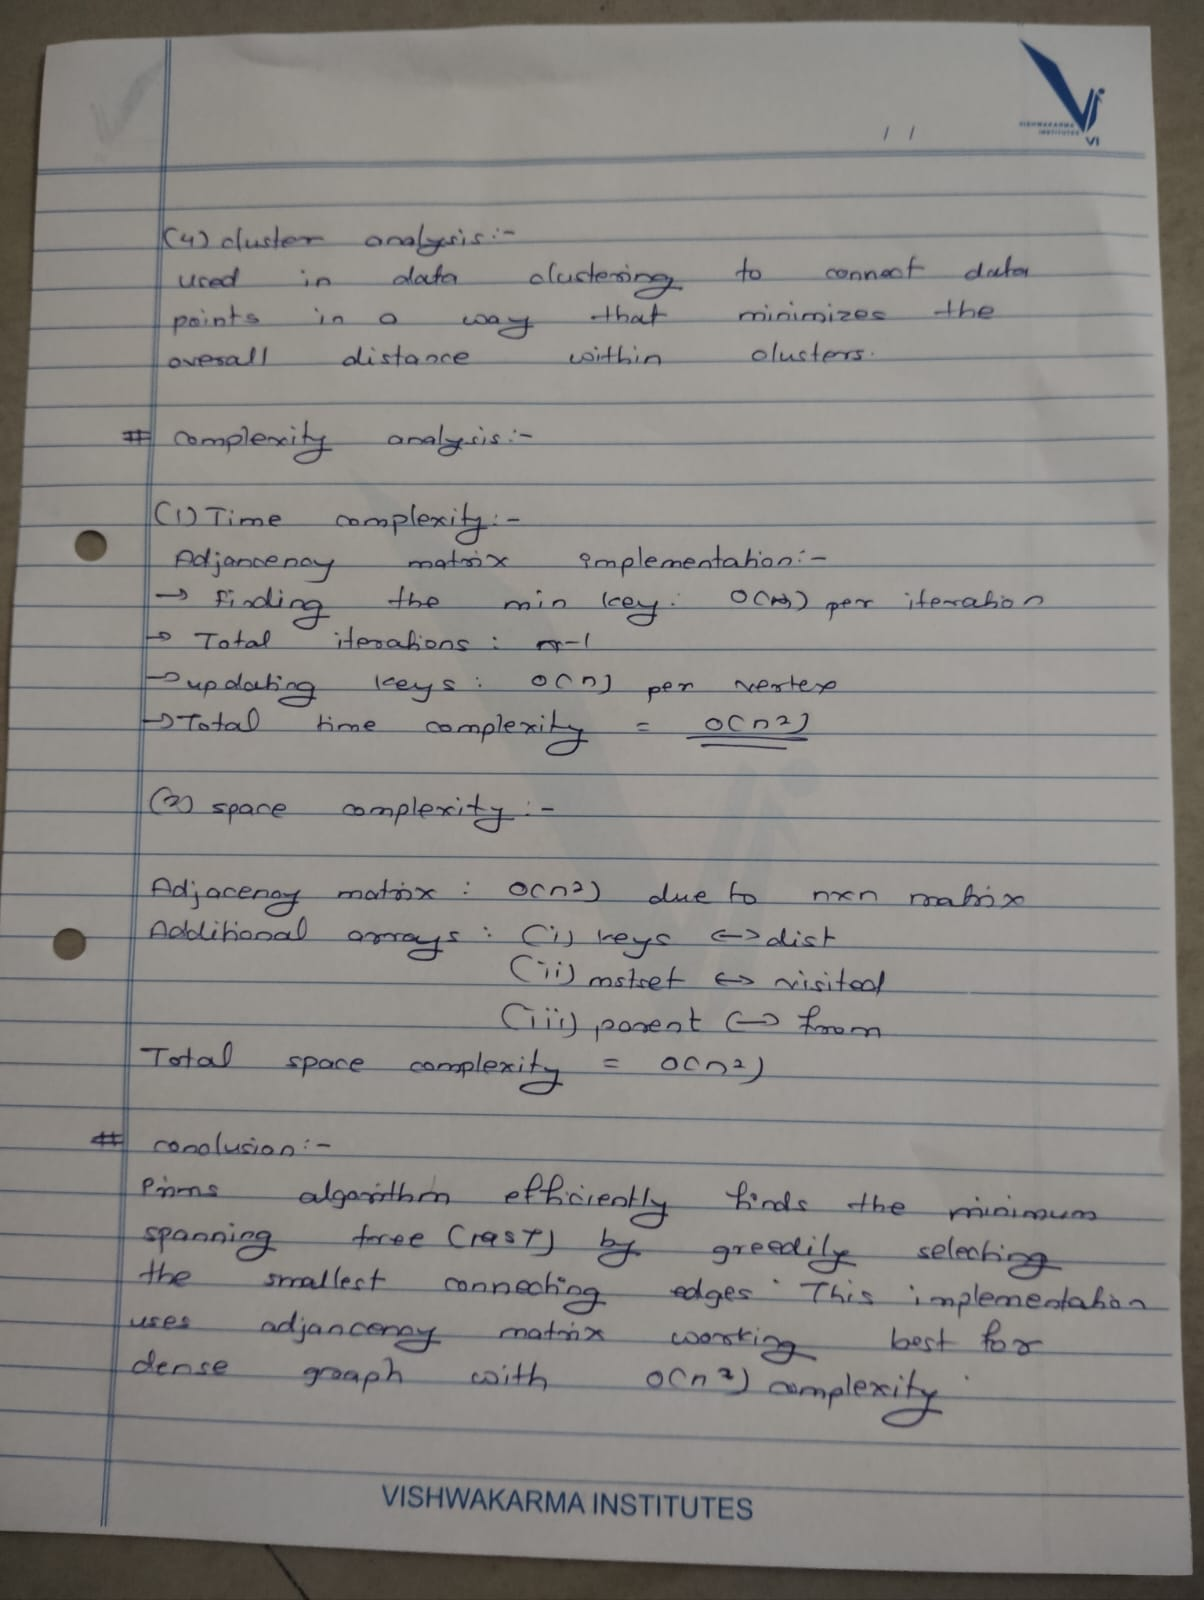 VISHWAKARMA
INSTITUTES
VI
/ /
(4) cluster analysis :-
used in data clustering to connect data
points in a way that minimizes the
overall distance within clusters.
# complexity analysis :-
(1) Time complexity :-
Adjancency matrix implementation :-
→ finding the min key : O(n) per iteration
→ Total iterations : n-1
→ updating keys : O(n) per vertex
→ Total time complexity = O(n2)
(2) space complexity :-
Adjacency matrix : O(n2) due to nxn matrix
Additional arrays : (i) keys ↔ dist
(ii) mstset ↔ visited
(iii) parent ↔ from
Total space complexity = O(n2)
# conclusion :-
Prims algorithm efficiently finds the minimum
spanning tree (MST) by greedily selecting
the smallest connecting edges. This implementation
uses adjancency matrix working best for
dense graph with O(n2) complexity.
VISHWAKARMA INSTITUTES